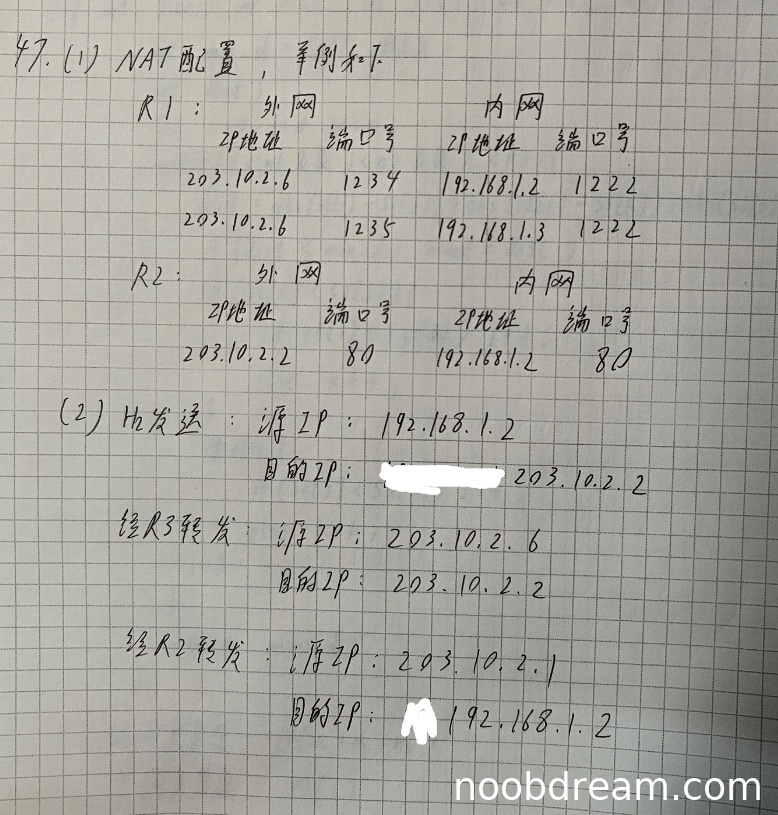 47. (1) NAT配置，举例如下
R1： 外网 内网
IP地址 端口号 IP地址 端口号
203.10.2.6 1234 192.168.1.2 1222
203.10.2.6 1235 192.168.1.3 1222
R2： 外网 内网
IP地址 端口号 IP地址 端口号
203.10.2.2 80 192.168.1.2 80
(2) H2发送： 源IP： 192.168.1.2
目的IP： 203.10.2.2
经R3转发： 源IP： 203.10.2.6
目的IP： 203.10.2.2
经R2转发： 源IP： 203.10.2.1
目的IP： 192.168.1.2
noobdream.com